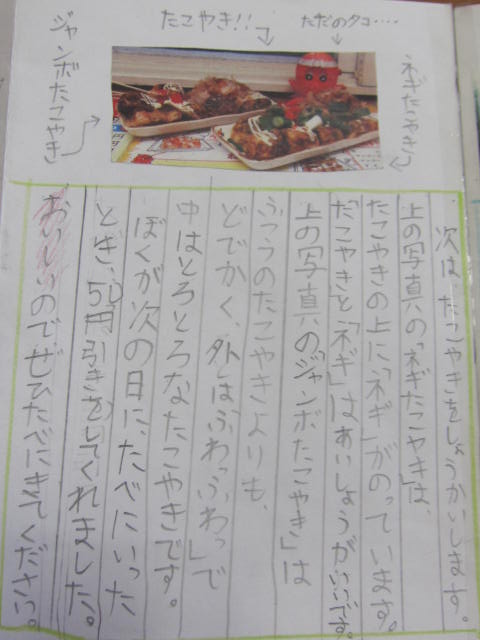 たこやき!!
ただのタコ‥‥
ネギたこやき
ジャンボたこやき
次はたこやきをしょうかいします。
上の写真の「ネギたこやき」は、
たこやきの上に「ネギ」がのっています。
「たこやき」と「ネギ」はあいしょうがいいです。
上の写真の「ジャンボたこやき」は
ふつうのたこやきよりも、
どでかく、外はふわっふわっで
中はとろとろなたこやきです。
ぼくが次の日に、たべにいった
とき、50円引きをしてくれました。
おいしいのでぜひたべにきてください。